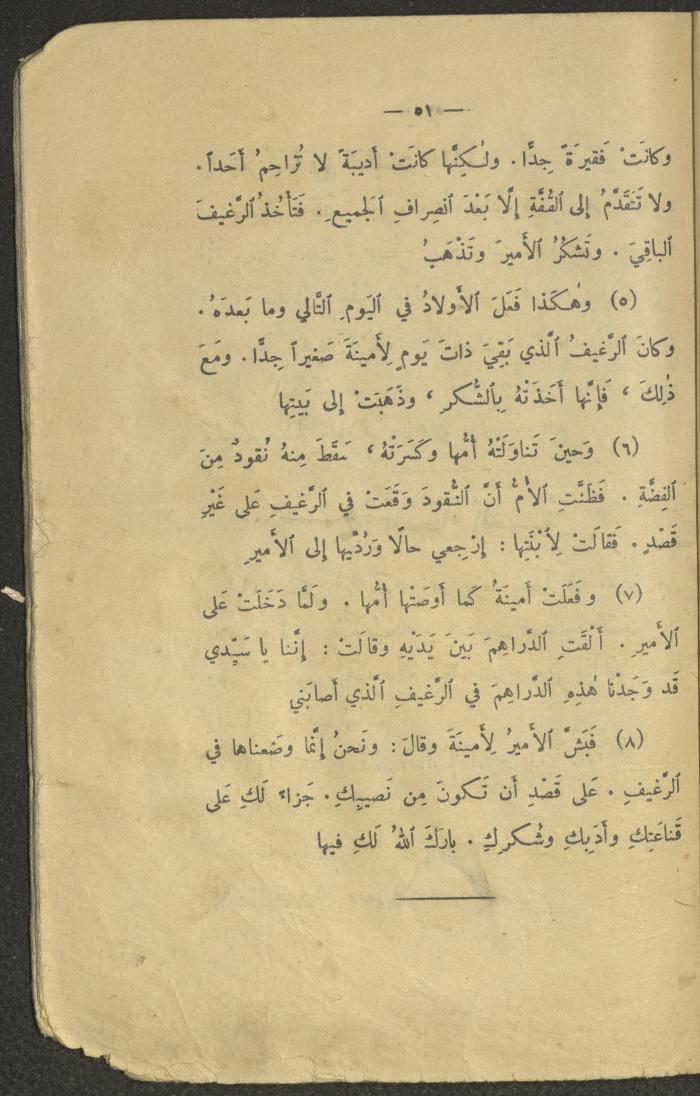 — ٥١ —
وكانَتْ فَقيرَةً جِدًّا . ولٰـكِنَّها كانَتْ أَديبَةً لا تُزاحِمُ أَحَداً .
ولا تَتَقَدَّمُ إِلى ٱلقُفَّةِ إِلّا بَعْدَ ٱنصِرافِ ٱلجَميعِ . فَتَأْخُذُ ٱلرَّغيفَ
ٱلباقِيَ . وتَشكُرُ ٱلأَميرَ وتَذْهَبُ
(٥) وهٰـكَذا فَعَلَ ٱلأَولادُ في ٱليَومِ ٱلتَّالي وما بَعدَهُ .
وكانَ ٱلرَّغيفُ ٱلَّذي بَقِيَ ذاتَ يَومٍ لِأَمينَةَ صَغيراً جِدًّا . ومَعَ
ذٰلِكَ ، فَإِنَّها أَخَذَتْهُ بِٱلشُّكرِ ، وذَهَبَتْ إِلى بَيتِها
(٦) وَحينَ تَناوَلَتْهُ أُمُّها وكَسَرَتْهُ ، سَقَطَ مِنهُ نُقودٌ مِنَ
ٱلفِضَّةِ . فَظَنَّتِ ٱلأُمُّ أَنَّ ٱلنُّقودَ وَقَعَتْ في ٱلرَّغيفِ عَلى غَيْرِ
قَصْدٍ . فَقالَتْ لِٱبْنَتِها : إِرْجِعي حالًا وَرُدِّيها إِلى ٱلأَميرِ
(٧) وفَعَلَتْ أَمينَةُ كَما أَوصَتْها أُمُّها . ولَمَّا دَخَلَتْ عَلى
ٱلأَميرِ . أَلْقَتِ ٱلدَّراهِمَ بَينَ يَدَيْهِ وقالَتْ : إِنَّنا يا سَيِّدي
قَد وَجَدْنا هٰذِهِ ٱلدَّراهِمَ في ٱلرَّغيفِ ٱلَّذي أَصابَني
(٨) فَبَشَّ ٱلأَميرُ لِأَمينَةَ وقالَ : ونَحنُ إِنَّما وضَعناها في
ٱلرَّغيفِ . عَلى قَصْدِ أَن تَـكونَ مِن نَصيبِكِ . جَزاءً لَكِ عَلى
قَناعَتِكِ وأَدَبِكِ وشُكرِكِ . بارَكَ ٱللهُ لَكِ فيها